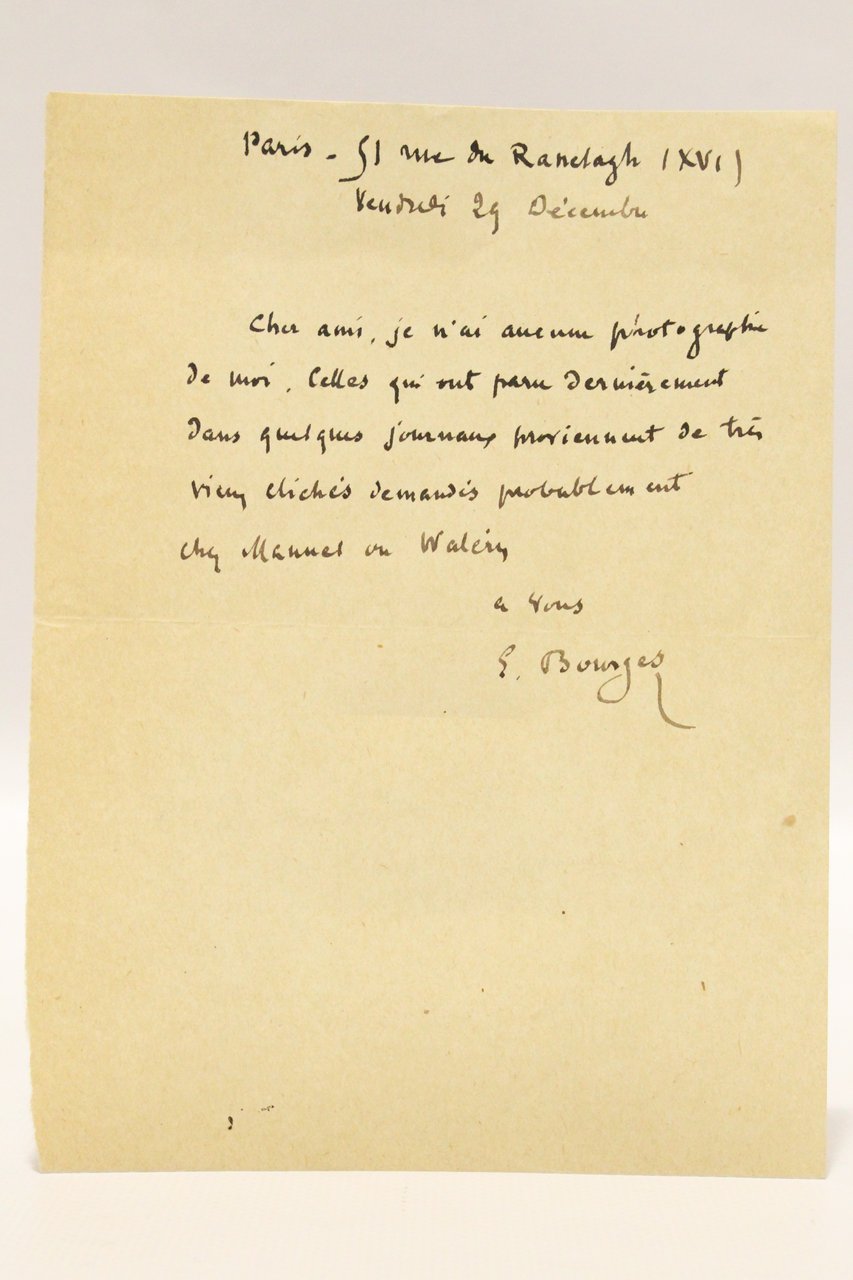 Paris - 51 rue du Ranelagh (XVI)
Vendredi 29 Décembre
Cher ami, je n'ai aucune photographie
de moi. Celles qui ont paru dernièrement
dans quelques journaux proviennent de très
vieux clichés demandés probablement
chez Manuel ou Waléry
a vous
E. Bourges